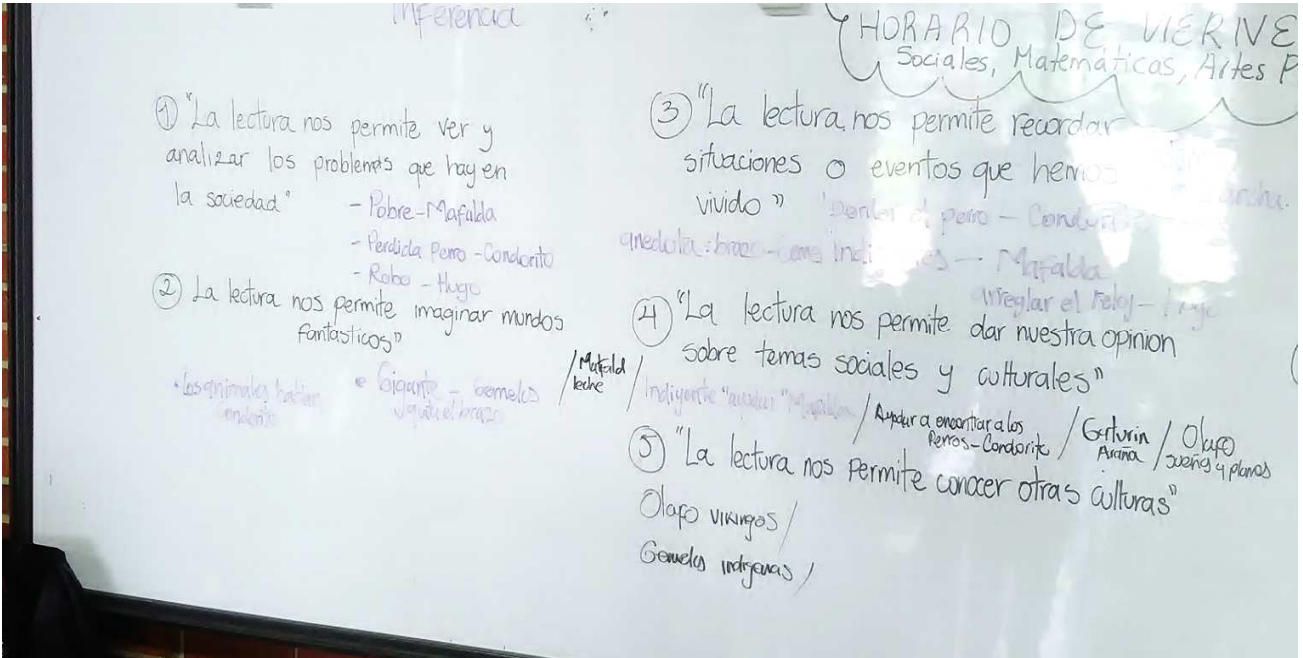 Inferencia
HORARIO DE VIERNE
Sociales, Matemáticas, Artes P
① "La lectura nos permite ver y
analizar los problemas que hay en
la sociedad"
- Pobre-Mafalda
- Perdida Perro-Condorito
- Robo - Hugo
② La lectura nos permite imaginar mundos
fantasticos"
• Los animales hablan
• Gigante - Gemelos
/Mafald
leche /
③ "La lectura nos permite recordar
situaciones o eventos que hemos
vivido"
perro -
anedota:
- Mafalda
arreglar el reloj - Hugo
④ "La lectura nos permite dar nuestra opinion
sobre temas sociales y culturales"
Indigente "ayudar" Mafalda
/ Ayudar a encontrar a los
Perros-Condorit /
Araña / Olafo
sueños y planos
⑤ "La lectura nos permite conocer otras culturas"
Olafo vikingos /
Gemelos indigenas /